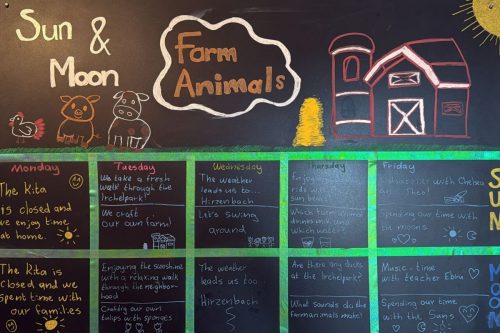 Sun &
Moon
Farm
Animals
Monday
The kita
is closed and
we enjoy time
at home.
Tuesday
We take a fresh
walk through the
Irchelpark!
We craft
our own farm!
Wednesday
The weather
leads us to...
Hirzenbach
Let's swing
around
Thursday
Enjoy
ride with
sun bear
Which farm animal
drinks milk and
which water?
Friday
with Chelsea
Theo!
Spending our time
with the moons
S
U
N
The kita is
closed and we
spent time with
our families
Enjoying the sunshine
with a relaxing walk
through the neighbor-
hood
Crafting our own
tulips with sponges
The weather
leads us too
Hirzenbach
Are there any ducks
at the Irchelpark?
What sounds do the
farm animals make?
Music-time
with teacher Ebru
Spending our time
with the Suns